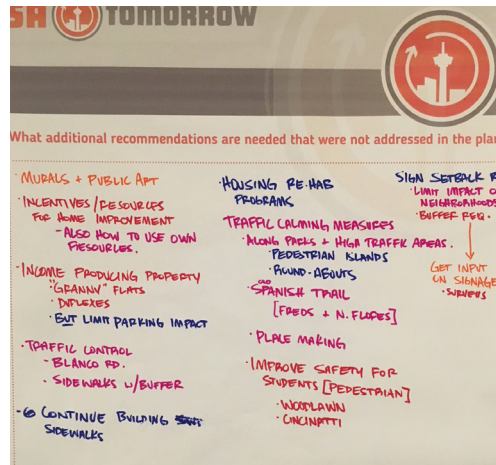 SA TOMORROW
What additional recommendations are needed that were not addressed in the plan
· MURALS + PUBLIC ART
· INCENTIVES/RESOURCES
FOR HOME IMPROVEMENT
- ALSO HOW TO USE OWN
RESOURCES.
- INCOME PRODUCING PROPERTY
· "GRANNY" FLATS
· DUPLEXES
· BUT LIMIT PARKING IMPACT
· TRAFFIC CONTROL
- BLANCO RD.
· SIDEWALKS W/BUFFER
- CONTINUE BUILDING
SIDEWALKS
· HOUSING RE-HAB
PROGRAMS
TRAFFIC CALMING MEASURES
· ALONG PARKS + HIGH TRAFFIC AREAS.
· PEDESTRIAN ISLANDS
· ROUND-ABOUTS
· OLD SPANISH TRAIL
[FREDS + N. FLORES]
· PLACE MAKING
· IMPROVE SAFETY FOR
STUDENTS [PEDESTRIAN]
· WOODLAWN
· CINCINATTI
SIGN SETBACK R
· LIMIT IMPACT O
NEIGHBORHOODS
· BUFFER REQ.
GET INPUT
ON SIGNAGE
· SURVEYS